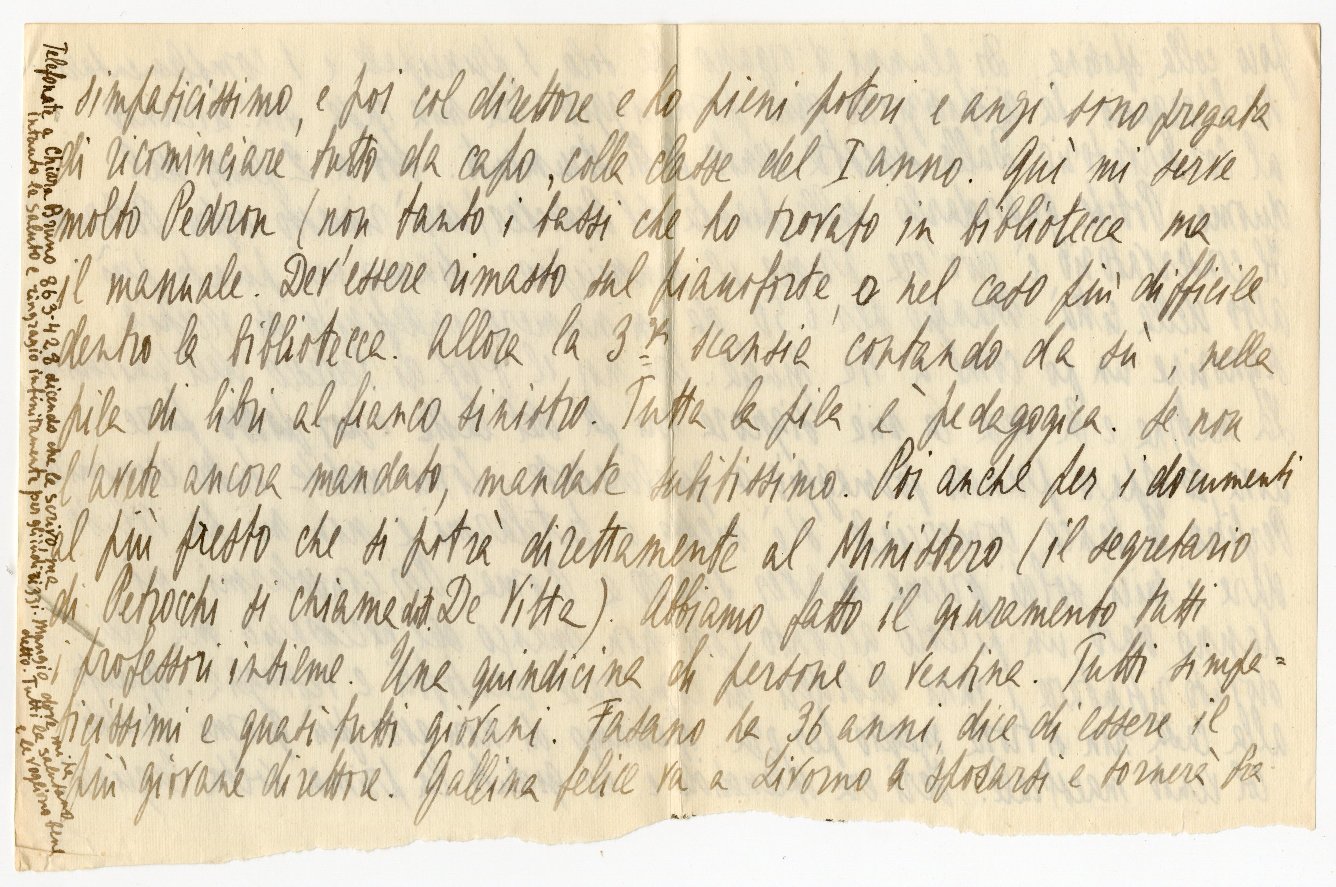 simpaticissimo, e poi col direttore e ho pieni poteri e anzi sono pregata
di ricominciare tutto da capo, colla classe del I anno. Quì mi serve
molto Pedron (non tanto i tassi che ho trovato in bibliotecca ma
il manuale. Dev'essere rimasto sul pianoforte, o nel caso più difficile
dentro la bibliotecca. Allora la 3 scansia contando da sù, nella
pila di libri al fianco sinistro. Tutta la pila è pedagogica. Se non
l'avete ancora mandato, mandate subitissimo. Poi anche per i documenti
al più presto che si potrà direttamente al Ministero (il segretario
di Petrocchi si chiama dott. De Vitta). Abbiamo fatto il giuramento tutti
i professori insieme. Una quindicina di persone o ventina. Tutti simpa=
ticissimi e quasi tutti giovani. Fasano ha 36 anni, dice di essere il
più giovane direttore. Gallina felice va a Livorno a sposarsi e tornerà fra
Telefonate a Chiara Bruno 863-428 dicendo che le scrivo, ma
intanto la saluto e ringrazio infinitamente per gli indirizzi. Mangio dove mi ha
detto. Tutti la salutano
e le vogliono bene